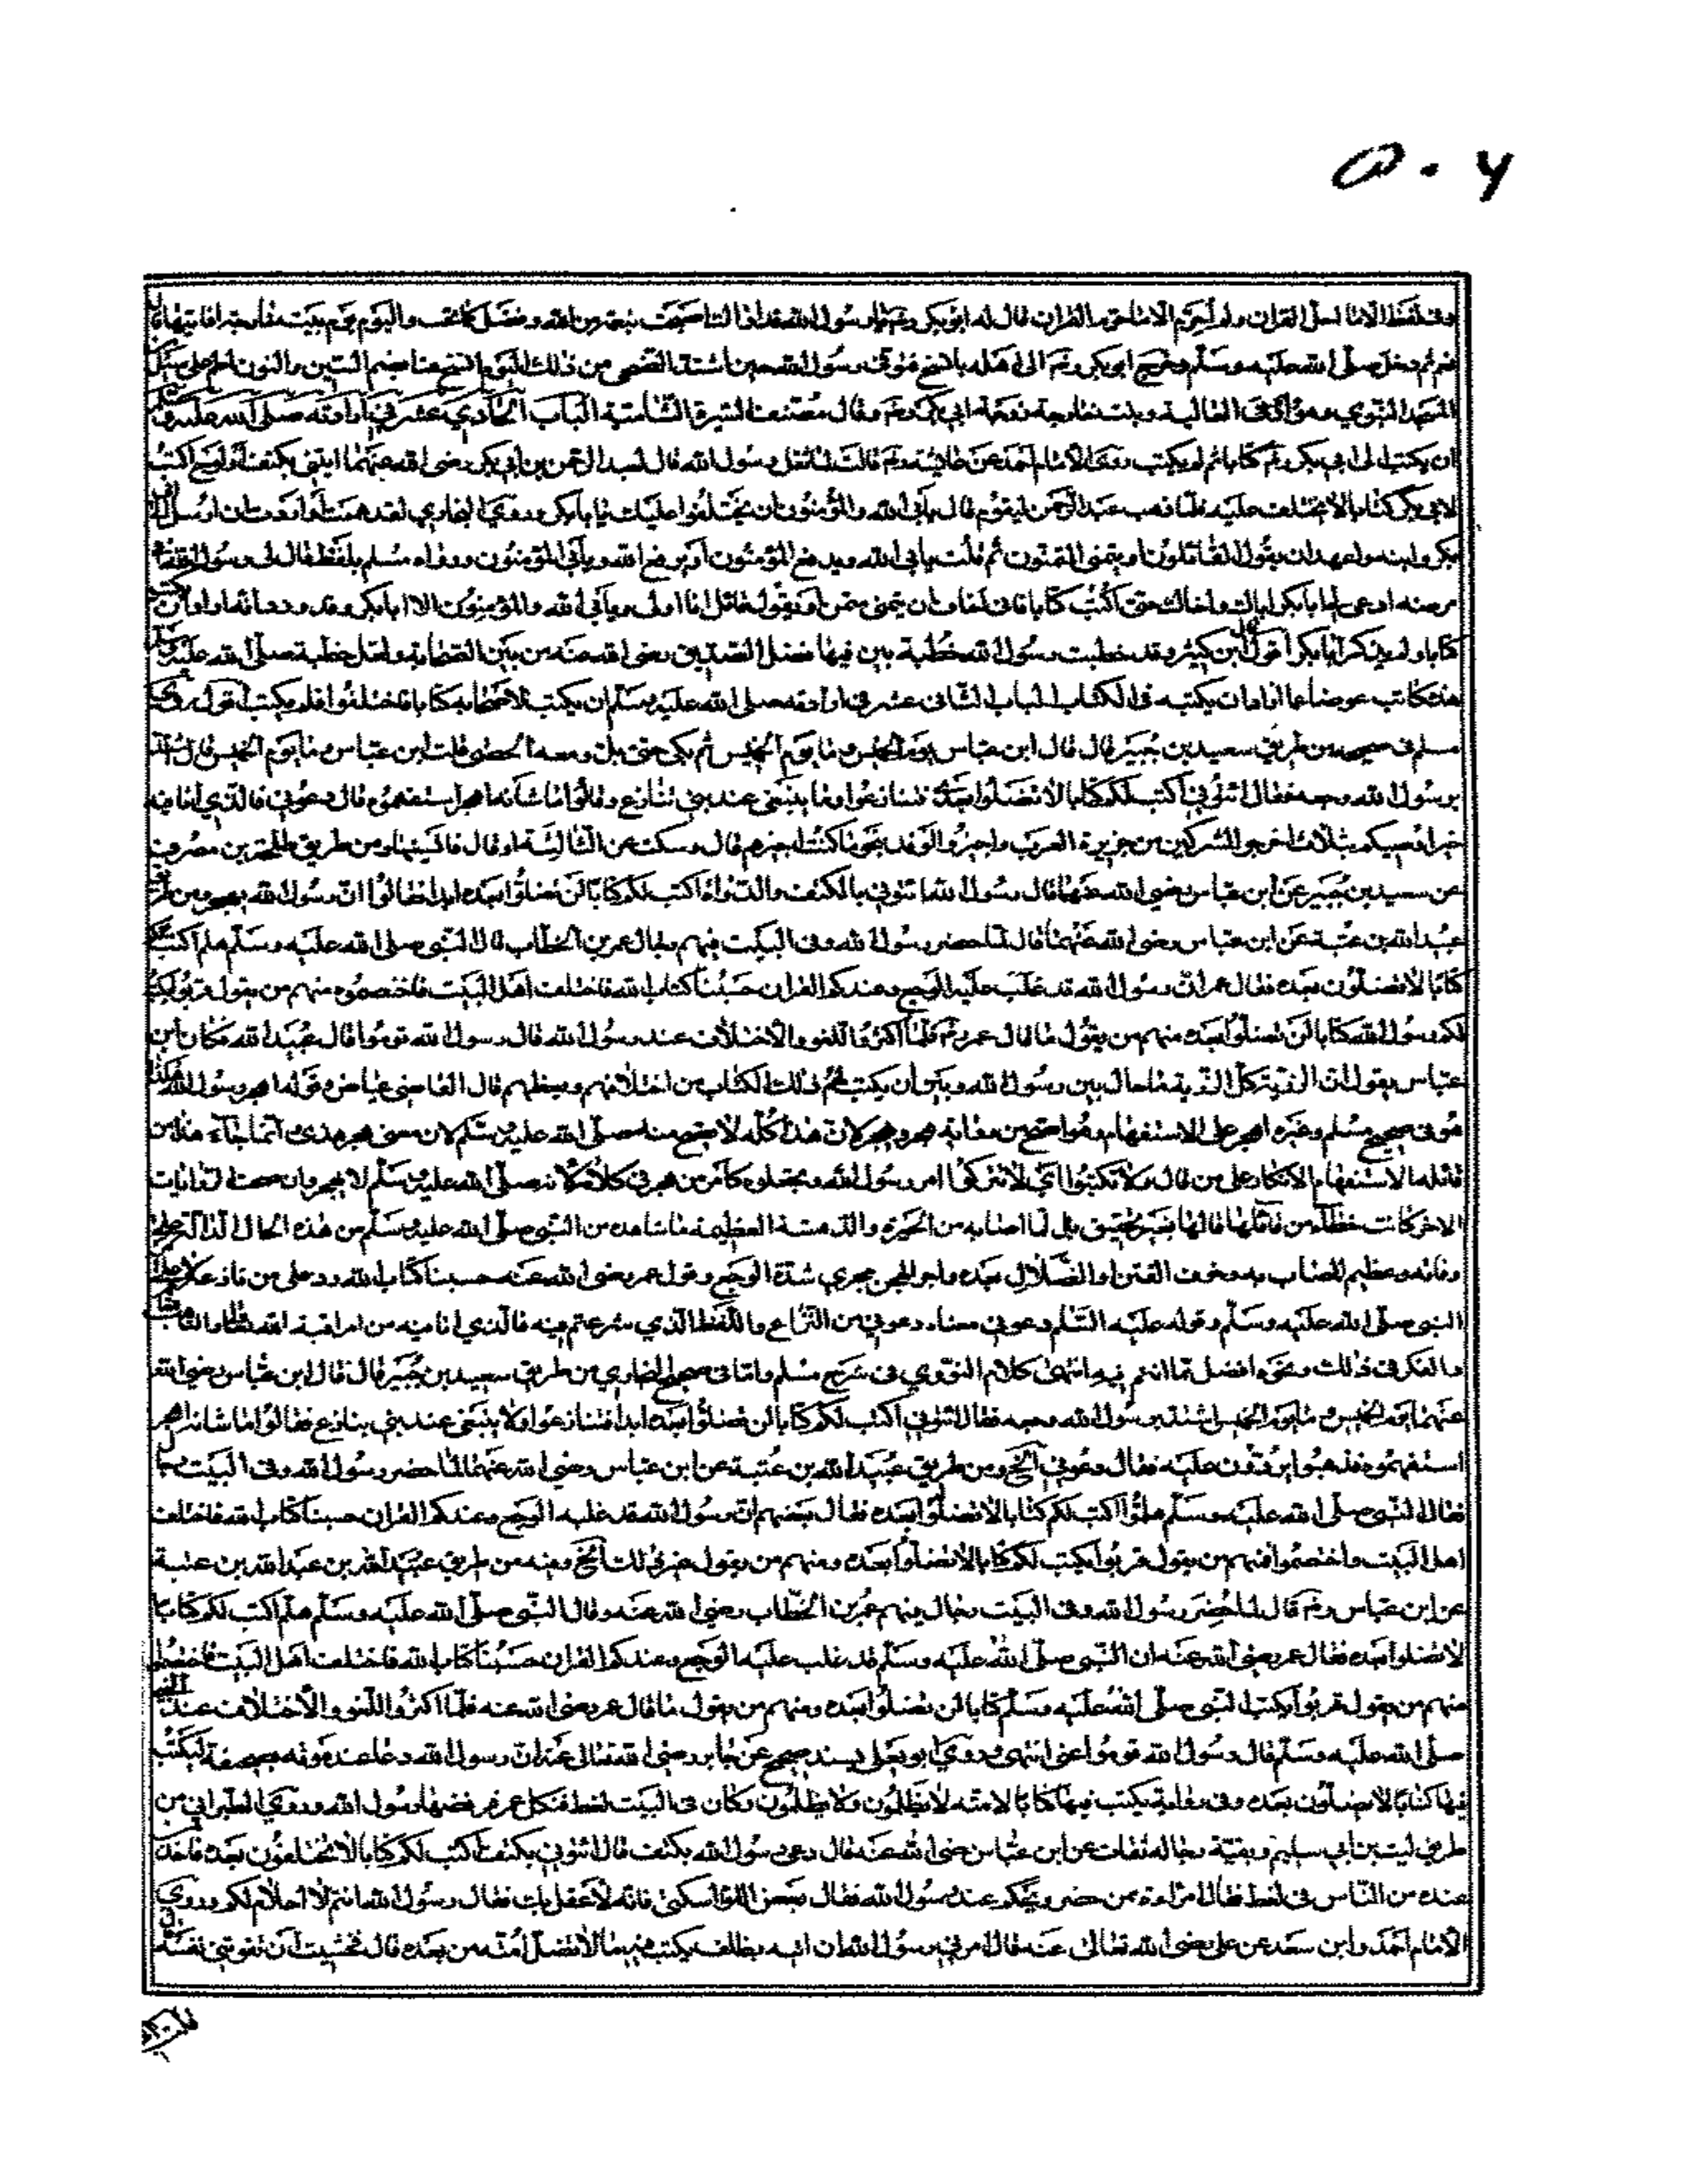 وفى لفظ الاما احل القران ولم أحرم الا ما حرم القران قال له ابو بكر رضم يا رسول الله قد اراك اصبحت بنعمة من الله وفضل كما تحب واليوم يوم بنت خارجة افاتيها قال
نعم ثم دخل صلى الله عليه وسلم وخرج ابو بكر رضم الى اهله بالسنح فتوفى رسول الله حين اشتد الضحى من ذلك اليوم السنح هنا بضم السين والنون
المسجد النبوي وهو فى العالية وبنت خارجة زوجة ابى بكر رضم وقال مصنف السيرة الشامية الباب الحادي عشر فى ارادته صلى الله عليه وسلم
ان يكتب لى ابى بكر رضم كتابا ثم لم يكتب روى الامام احمد عن عائشة رضم قالت لما ثقل رسول الله قال لعبد الرحمن بن ابي بكر رضى الله عنهما ايتنى بكتف او لوح اكتب
لابى بكر كتابا لا يختلف عليه فلما ذهب عبد الرحمن ليقوم قال يأبى الله والمؤمنون ان يختلفوا عليك يا ابا بكر وروى البخاري لقد هممت او اردت ان ارسل الى
بكر وابنه واعهد ان يقول القائلون او يتمنى المتمنون ثم قلت يأبى الله ويدفع المؤمنون او يدفع الله ويأبى المؤمنون ورواه مسلم بلفظ قال لى رسول الله
مرضه ادعى لى ابا بكر اباك واخاك حتى اكتب كتابا فانى اخاف ان يتمنى متمن او يقول قائل انا اولى ويأبى الله والمؤمنون الا ابا بكر وقد
كتابا ولم يذكر ابا بكر اقول قال ابن كثير وقد خطب رسول الله خطبة بين فيها فضل الصديق رضى الله عنه من بين الصحابة ولعل خطبة صلى الله عليه وسلم
هذه كانت عوضا عما اراد ان يكتبه فى الكتاب الباب الثانى عشر فى ارادته صلى الله عليه وسلم ان يكتب لاصحابه كتابا فاختلفوا فلم يكتب اقول روى
مسلم فى صحيحه من طريق سعيد بن جبير قال قال ابن عباس يوم الخميس وما يوم الخميس ثم بكى حتى بل دمعه الحصى قلت ابن عباس وما يوم الخميس قال اشتد
برسول الله وجعه فقال ائتونى اكتب لكم كتابا لا تضلوا بعدى فتنازعوا وما ينبغى عند نبى تنازع وقالوا ما شأنه اهجر استفهموه قال دعونى فالذي انا فيه
خير اوصيكم بثلاث اخرجوا المشركين من جزيرة العرب واجيزوا الوفد بنحو ما كنت اجيزهم قال وسكت عن الثالثة او قال فانسيتها ومن طريق طلحة بن مصرف
عن سعيد بن جبير عن ابن عباس رضى الله عنهما قال رسول الله ائتونى بالكتف والدواة اكتب لكم كتابا لن تضلوا بعده ابدا فقالوا ان رسول الله يهجر ومن طريق
عبيد الله بن عتبة عن ابن عباس رضى الله عنهما قال لما حضر رسول الله وفى البيت رجال فيهم عمر بن الخطاب قال النبى صلى الله عليه وسلم هلم اكتب لكم
كتابا لا تضلون بعده فقال عمر ان رسول الله قد غلب عليه الوجع وعندكم القران حسبنا كتاب الله فاختلف اهل البيت فاختصموا منهم من يقول قربوا يكتب
لكم رسول الله كتابا لن تضلوا بعده منهم من يقول ما قال عمر رضم فلما اكثروا اللغو والاختلاف عند رسول الله قال رسول الله قوموا قال عبيد الله فكان ابن
عباس يقول ان الرزية كل الرزية ما حال بين رسول الله وبين ان يكتب لهم ذلك الكتاب من اختلافهم ولغطهم قال القاضى عياض وقوله اهجر رسول الله هكذا
هو فى صحيح مسلم وغيره اهجر على الاستفهام وهو اصح من رواية هجر ويهجر لان هذا كله لا يصح منه صلى الله عليه وسلم لان معنى هجر هذى انما جاء هذا من
قائله بالاستفهام الانكار على من قال ولا تكتبوا اي لا تتركوا امر رسول الله وتجعلوه كامر من هجر فى كلامه لانه صلى الله عليه وسلم لا يهجر وان صحت الروايات
الاخر كانت خطأ من قائلها قالها بغير تحقيق بل لما اصابه من الحيرة والدهشة العظيمة ما شاهده من النبى صلى الله عليه وسلم من هذه الحال الدالة على
وفاته وعظيم المصاب به وخوف الفتن او الضلال بعده واجرى الهجر مجري شدة الوجع وقول عمر رضى الله عنه حسبنا كتاب الله رد على من نازعه لا على امر
النبى صلى الله عليه وسلم وقوله عليه السلام دعونى معناه دعونى من النزاع واللفظ الذي شرعتم فيه فالذي انا فيه من مراقبة الله تعالى والتأهب
والفكر فى ذلك ونحوه افضل مما انتم فيه انتهى كلام النووي فى شرح مسلم واما فى صحيح البخاري من طريق سعيد بن جبير قال قال ابن عباس رضى الله
عنهما يوم الخميس وما يوم الخميس اشتد برسول الله وجعه فقال ائتونى اكتب لكم كتابا لن تضلوا بعده ابدا فتنازعوا ولا ينبغى عند نبى تنازع فقالوا ما شأنه اهجر
استفهموه فذهبوا يردون عليه فقال دعونى الخ ومن طريق عبيد الله بن عتبة عن ابن عباس رضى الله عنهما لما حضر رسول الله وفى البيت رجال
فقال النبى صلى الله عليه وسلم هلموا اكتب لكم كتابا لا تضلوا بعده فقال بعضهم ان رسول الله قد غلبه الوجع وعندكم القران حسبنا كتاب الله فاختلف
اهل البيت واختصموا فمنهم من يقول قربوا يكتب لكم كتابا لا تضلوا بعده ومنهم من يقول غير ذلك الخ وفيه من طريق عبيد الله بن عبد الله بن عتبة
عن ابن عباس رضم قال لما حضر رسول الله وفى البيت رجال فيهم عمر بن الخطاب رضى الله عنه وقال النبى صلى الله عليه وسلم هلم اكتب لكم كتابا
لا تضلوا بعده فقال عمر رضى الله عنه ان النبى صلى الله عليه وسلم قد غلب عليه الوجع وعندكم القران حسبنا كتاب الله فاختلف اهل البيت فاختصموا
منهم من يقول قربوا يكتب النبى صلى الله عليه وسلم كتابا لن تضلوا بعده ومنهم من يقول ما قال عمر رضى الله عنه فلما اكثروا اللغو والاختلاف عند النبى
صلى الله عليه وسلم قال رسول الله قوموا عنى انتهى وروى ابو يعلى بسند صحيح عن جابر رضى الله تعالى عنه ان رسول الله دعا عند موته بصحيفة ليكتب
فيها كتابا لا يضلون بعده وفى رواية يكتب فيها كتابا لامته لا يظلمون ولا يظلمون وكان فى البيت لغط فنكل عمر فرفضها رسول الله وروى الطبرانى من
طريق ليث بن ابى سليم وبقية رجاله ثقات عن ابن عباس رضى الله عنه قال دعى رسول الله بكتف فقال ائتونى بكتف اكتب لكم كتابا لا تختلفون بعده فاخذ
عنده من الناس فى لغط فقال امرأة ممن حضر ويحكم عهد رسول الله فقال بعض القوم اسكتى فانه لا عقل لك فقال رسول الله انتم لا احلام لكم وروى
الامام احمد وابن سعد عن على رضى الله تعالى عنه قال امرنى رسول الله ان اتيه بطبق يكتب فيه ما لا تضل امته من بعده قال فخشيت ان تفوتنى نفسه